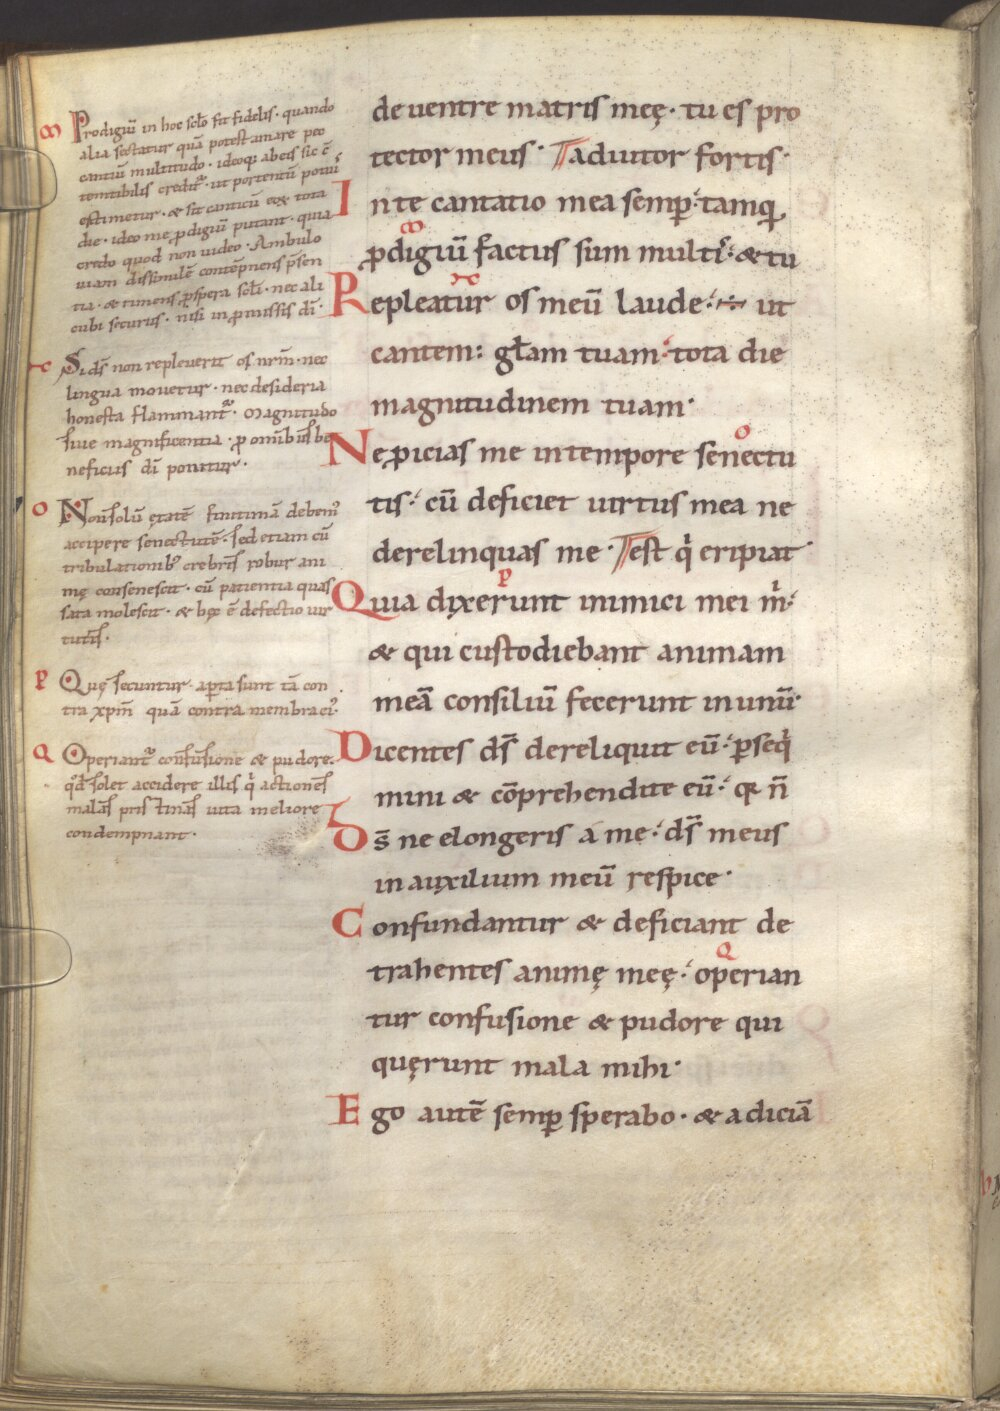 m Prodigiū in hoc sclo fit fidelis · quando
alia sectatur quā potest amare pec
cantiū multitudo · ideoq; ab eis sic cō
temtibilis creditᷣ · ut portentū potiꝰ
estimetur · & sit canticū eoꝝ tota
die · ideo me ꝓdigiū putant · quia
credo quod non uideo · Ambulo
uiam dissimilē contēpnens p̄sen
tia · & timens ꝓspera scl̄i · nec ali
cubi securus · nisi in ꝓmissis dī ·
Si dſ̄ non repleuerit os nr̄m · nec
lingua mouetur · nec desideria
honesta flammantᷣ · Magnitudo
siue magnificentia · ꝓ omīb; be
neficiis dī ponitur ·
o Non solū ętatē finitimā debemꝰ
accipere senectutē · sed etiam cū
tribulationibꝰ crebris robur ani
mę consenescit · cū patientia quas
sata molescit · & hęc ē defectio uir
tutis ·
p Quę secuntur · aꝑta sunt tā con
tra xpm̄ quā contra membra eiꝰ ·
Q Operiantᷣ confusione & pudore ·
qd̄ solet accidere illis qͥ actiones
malas pristinas uita meliore
condempnant ·
de uentre matris meę · tu es pro
tector meus · Tadiutor fortis ·
In te cantatio mea semꝑ · tamqͣ
m
ꝓdigiū factus sum multis · & tu
Repleatur os meū laude · ÷ ut
cantem: gl̄am tuam · tota die
magnitudinem tuam ·
o
Ne ꝓicias me in tempore senectu
tis · cū deficiet uirtus mea ne
derelinquas me · Test qͥ eripiat ·
p
Quia dixerunt inimici mei m̄ ·
& qui custodiebant animam
meā consiliū fecerunt in unū ·
Dicentes ds̄ dereliquit eū · ꝑseqͥ
mini & cōprehendite eū · qꝛ n̄
Ds̄ ne elongeris a me · ds̄ meus
in auxilium meū respice ·
Confundantur & deficiant de
Q
trahentes animę meę · operian
tur confusione & pudore qui
quęrunt mala mihi ·
Ego autē semꝑ sperabo · & adiciā